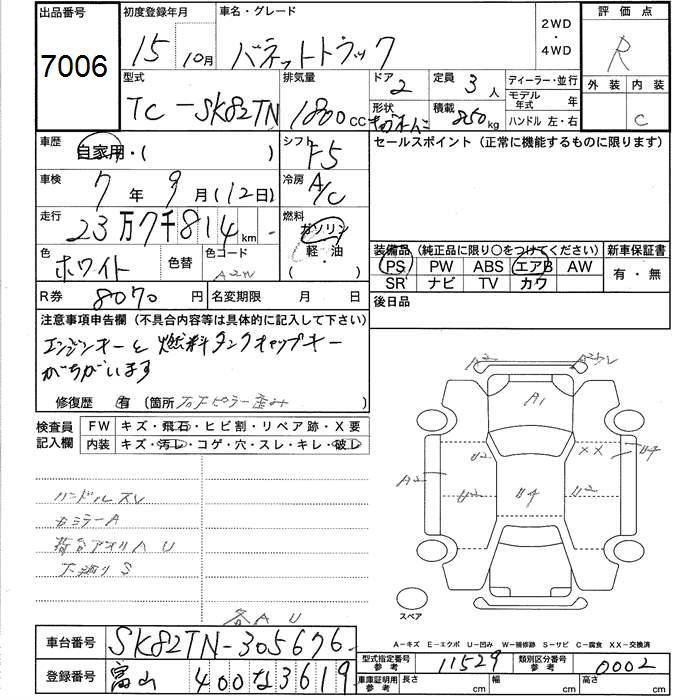 出品番号 初度登録年月 車名・グレード 2WD ・ 4WD 評価点
7006 15 10月 バネットトラック R
型式 排気量 ドア 2 定員 3 人 ディーラー・並行 外装 内装
TC-SK82TN 1800 cc 形状 積載 850 kg モデル年式 年 C
ハンドル 左・右
車歴 自家用・( ) シフト F5 セールスポイント (正常に機能するものに限ります)
車検 7 年 9 月 (12日) 冷房 A/C
走行 23万7千814 km 燃料 ガソリン 軽・油
装備品 (純正品に限り○をつけてください) 新車保証書
色 ホワイト 色替 色コード A2W PS PW ABS エアB AW 有・無
SR ナビ TV カワ
R券 8070 円 名変期限 月 日 後日品
注意事項申告欄 (不具合内容等は具体的に記入して下さい)
エンジンキーと燃料タンクキャップキー
がちがいます
修復歴 有 (箇所
検査員記入欄 FW キズ・飛石・ヒビ割・リペア跡・X要
内装 キズ・汚レ・コゲ・穴・スレ・キレ・破レ
A2
A1
U2 XX U4
A2 U2 U4 U2
ハンドルスレ
ミラーA
荷台アオリAU
下廻りS
各AU
スペア
A-キズ E-エクボ U-凹み W-補修跡 S-サビ C-腐食 XX-交換済
車台番号 SK82TN-305676 型式指定番号 参考 11529 類別区分番号 参考 0002
登録番号 富山 400 な 3619 車庫証明用 参考 長さ cm 幅 cm 高さ cm